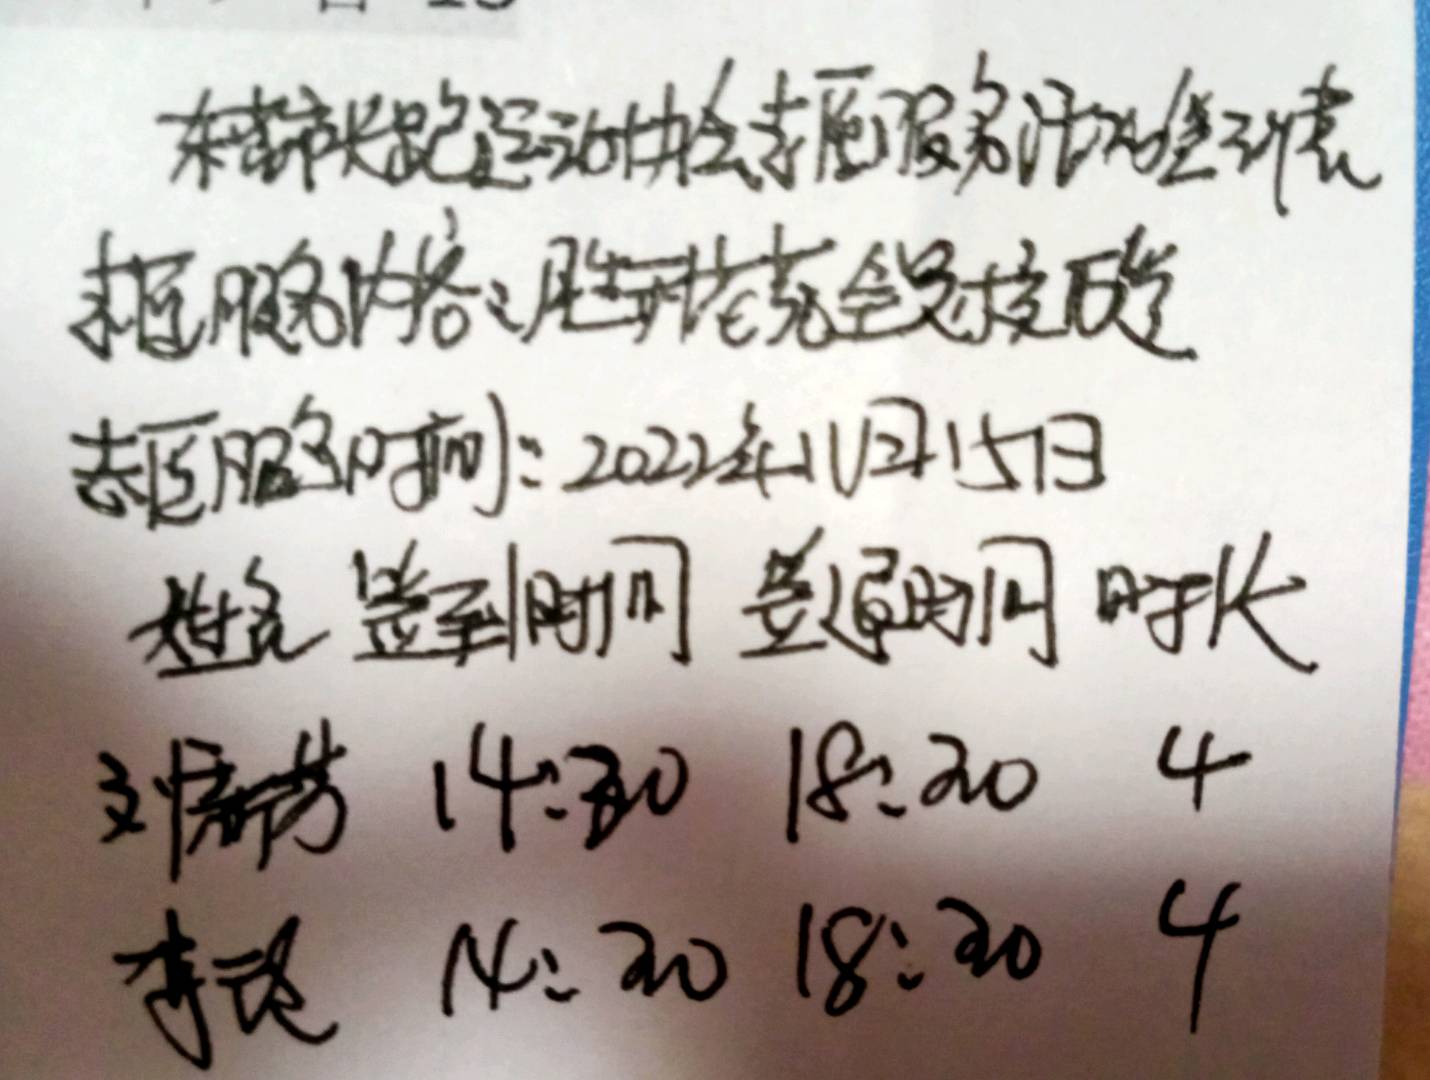 东营市长跑运动协会志愿服务活动签到表
志愿服务内容:胜利花苑全员核酸
志愿服务时间:2022年11月15日
姓名 签到时间 签退时间 时长
刘 芳 14:30 18:30 4
李 14:30 18:30 4